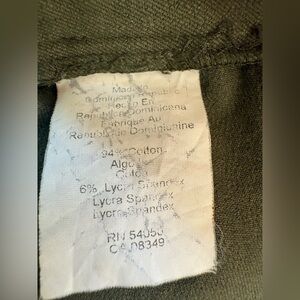 Made In
Dominican Republic
Hecho En
Republica Dominicana
Fabrique Au
Republique Dominicaine
94% Cotton
Algo
Coton
6% Lycra Spandex
Lycra Spandex
Lycra Spandex
RN 54050
CA 08349